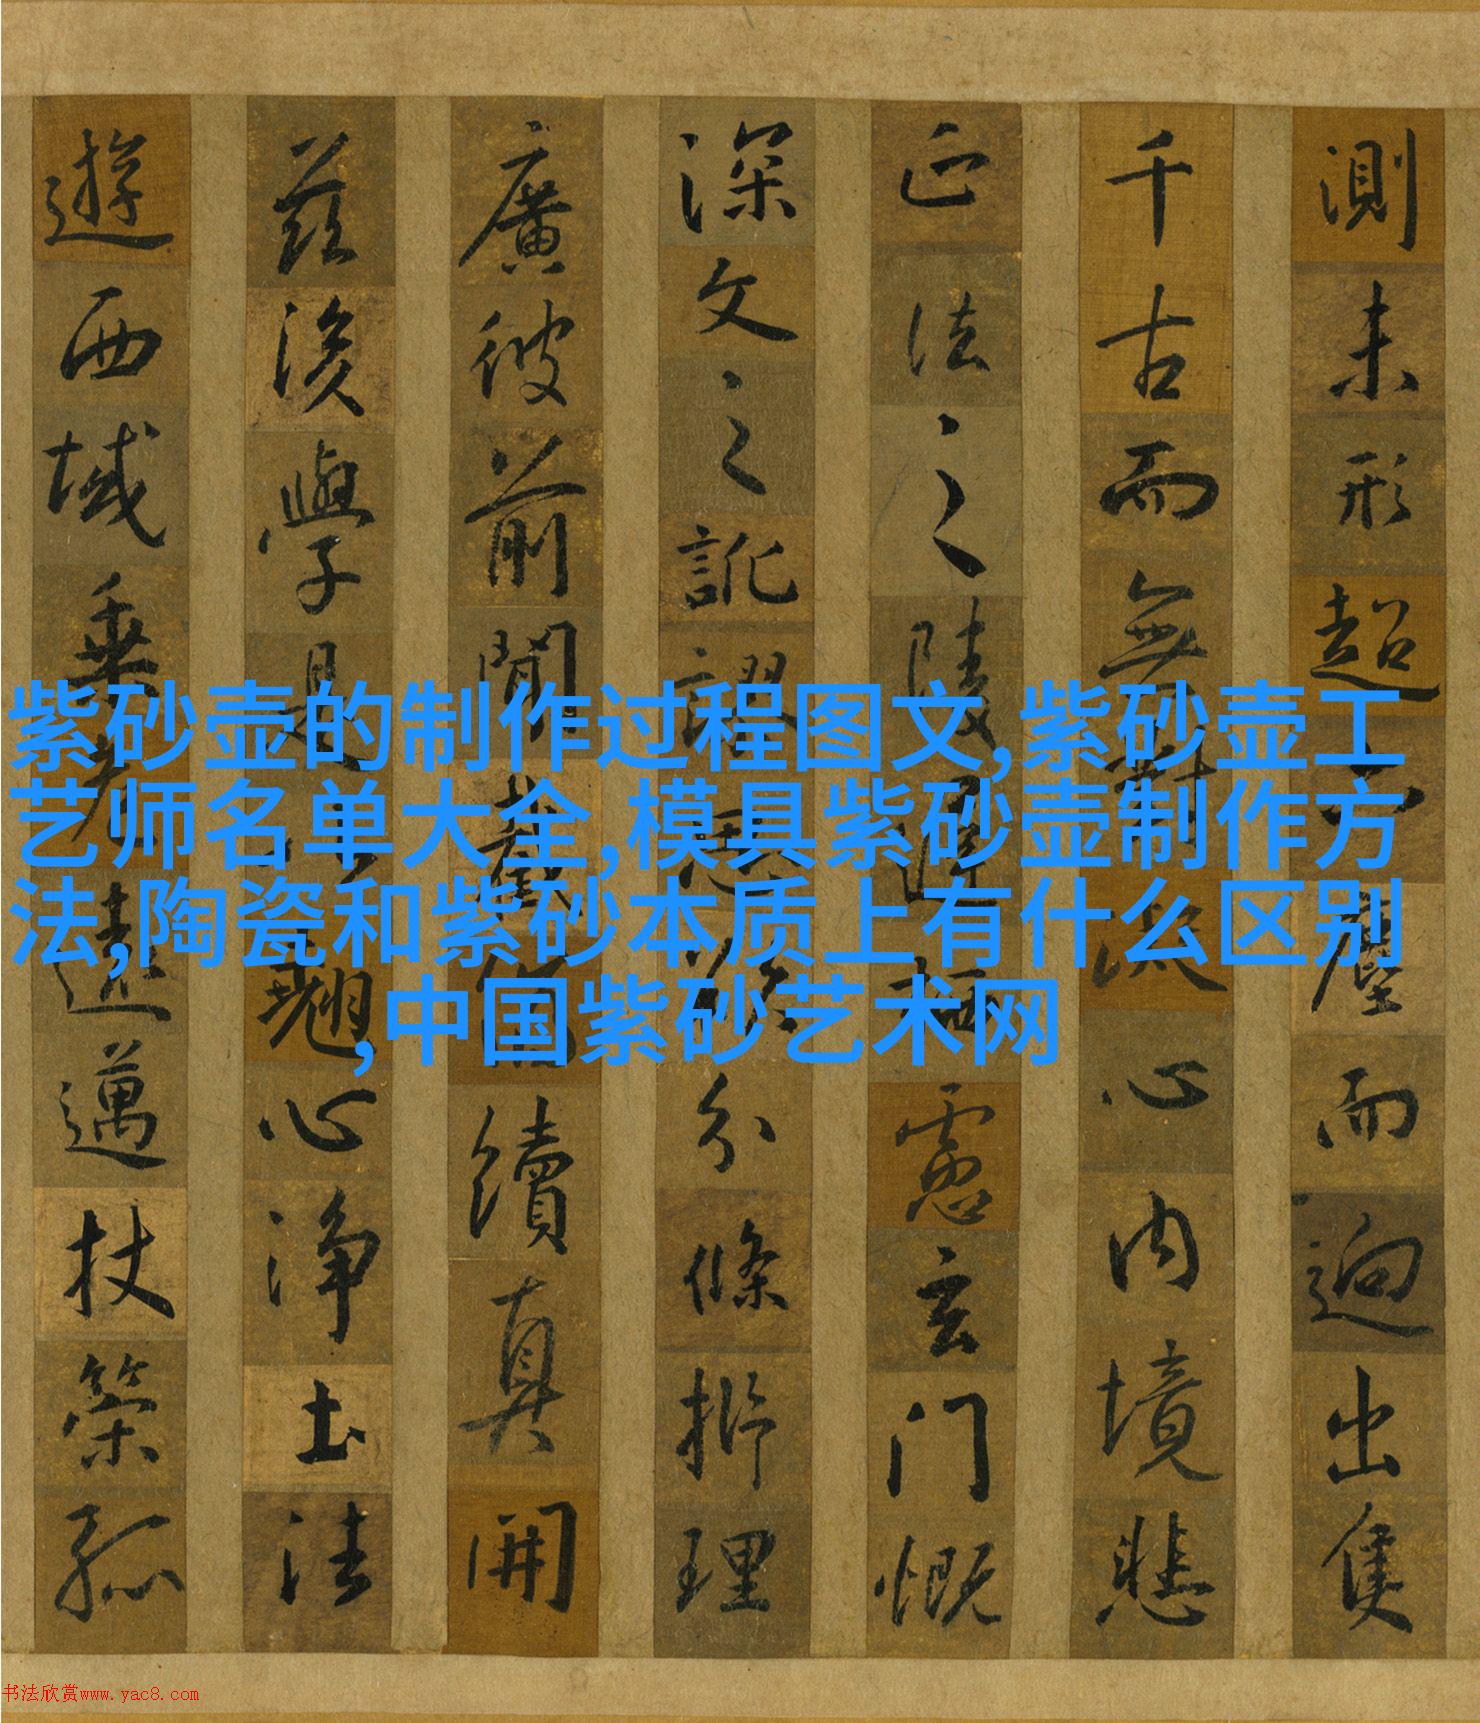 測未形超六塵而迥出隻
千古而無對凝心內境悲
正法之陵遲栖慮玄門慨
深文之訛謬思欲分條析理
廣彼前聞截偽續真開
茲後學是以翹心淨土法
遊西域乘危遠邁杖策孤
紫砂壶的制作过程图文,紫砂壶工
艺师名单大全,模具紫砂壶制作方
法,陶瓷和紫砂本质上有什么区别
,中国紫砂艺术网
书法欣赏www.yac8.com